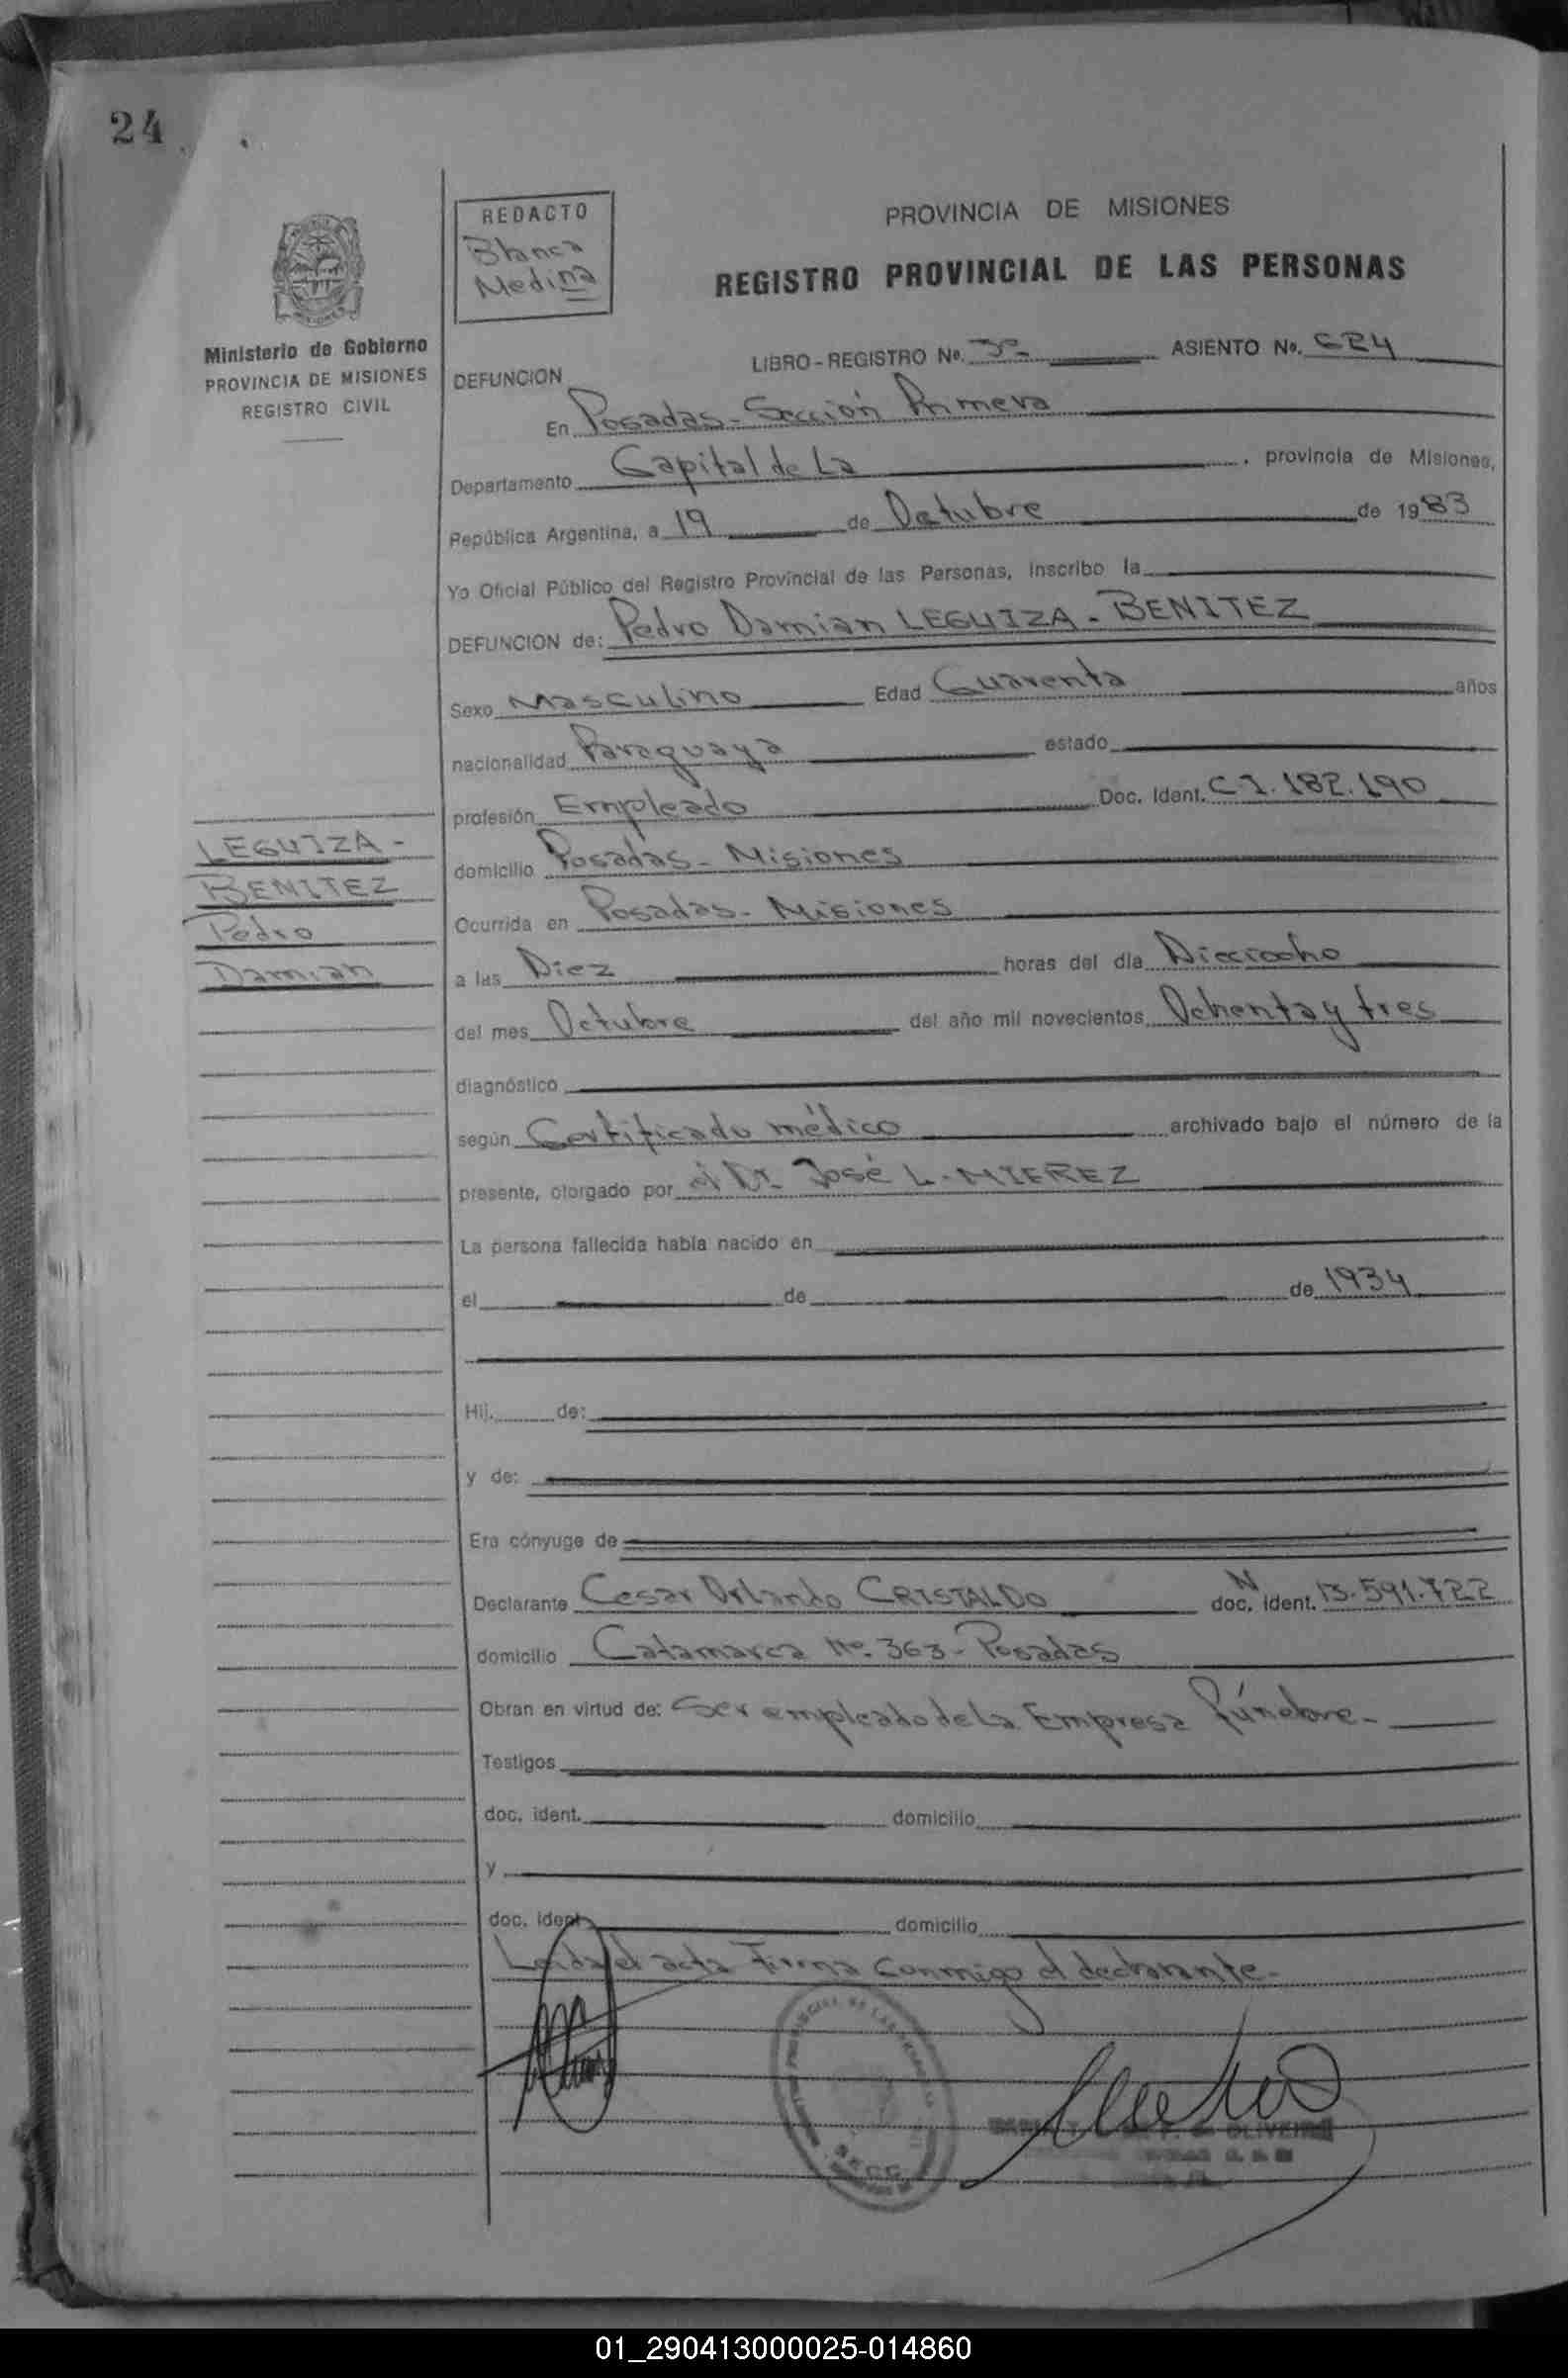 24
REDACTO
Blanca
Medina
PROVINCIA DE MISIONES
REGISTRO PROVINCIAL DE LAS PERSONAS
Ministerio de Gobierno
PROVINCIA DE MISIONES
REGISTRO CIVIL
LIBRO-REGISTRO Nº. 3º ASIENTO Nº.
DEFUNCION
En Posadas - Sección Primera
Departamento Capital de La , provincia de Misiones,
República Argentina, a 19 de Octubre de 1983
Yo Oficial Público del Registro Provincial de las Personas, inscribo la
DEFUNCION de: Pedro Damian LEGUIZA - BENITEZ
Sexo Masculino Edad Cuarenta años
nacionalidad Paraguaya estado
profesión Empleado Doc. Ident. C.I. 182.190
domicilio Posadas - Misiones
LEGUIZA -
BENITEZ
Pedro
Damian
Ocurrida en Posadas - Misiones
a las Diez horas del día Dieciocho
del mes Octubre del año mil novecientos Ochenta y tres
diagnóstico
según Certificado médico archivado bajo el número de la
presente, otorgado por el Dr. José L. MIEREZ
La persona fallecida había nacido en
el de de 1934
Hij. de:
y de:
Era cónyuge de
Declarante Cesar Orlando CRISTALDO doc. N ident. 13.591.722
domicilio Catamarca Nº. 363 - Posadas
Obran en virtud de: Ser empleado de la Empresa fúnebre -
Testigos
doc. ident. domicilio
y
doc. ident. domicilio
Leida el acta Firma conmigo el declarante -
OLIVEIRA
SECC.
01_290413000025-014860